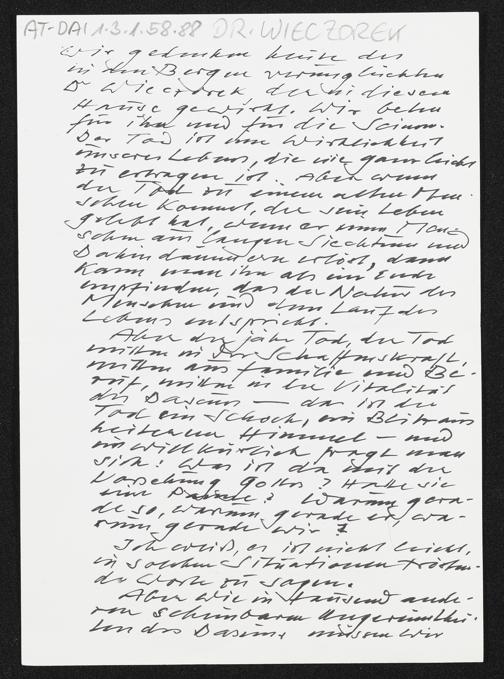 AT-DAI 1.3.1.58.88 DR. WIECZOREK
Wir gedenken heute des
in den Bergen verunglückten
Dr Wieczorek der in diesem
Hause gewirkt. Wir beten
für ihn und für die Seinen.
Der Tod ist eine Wirklichkeit
unseres Lebens, die nie ganz leicht
zu ertragen ist. Aber wenn
der Tod zu einem alten Men-
schen kommt, der sein Leben
gelebt hat, wenn er einen Men-
schen aus langem Siechtum und
Dahindämmern erlöst, dann
kann man ihn als ein Ende
empfinden, das der Natur des
Menschen und dem Lauf des
Lebens entspricht.
Aber der jähe Tod, der Tod
mitten in der Schaffenskraft,
mitten aus Familie und Be-
ruf, mitten in der Vitalität
des Daseins – das ist der
Tod ein Schock, ein Blitz aus
heiterem Himmel – und
unwillkürlich fragt man
sich: Was ist da mit der
Vorsehung Gottes? Hatte sie
eine Panne? Warum gera-
de so, warum gerade er, wa-
rum gerade wir?
Ich weiß, es ist nicht leicht,
in solchen Situationen trösten-
de Worte zu sagen.
Aber wie in tausend ande-
ren scheinbaren Ungereimthei-
ten des Daseins müssen wir